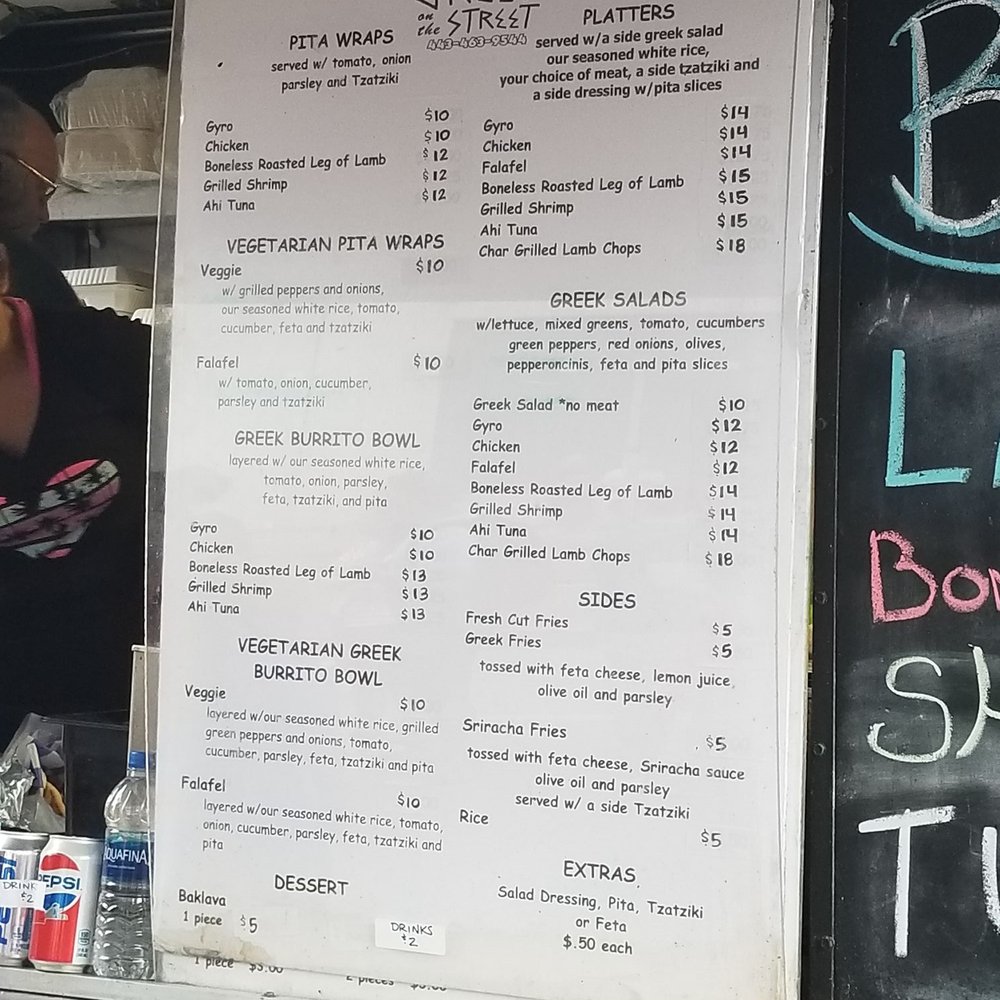 on
the STREET
443-463-9544
PITA WRAPS
served w/ tomato, onion
parsley and Tzatziki
Gyro $10
Chicken $10
Boneless Roasted Leg of Lamb $12
Grilled Shrimp $12
Ahi Tuna $12
VEGETARIAN PITA WRAPS
Veggie $10
w/ grilled peppers and onions,
our seasoned white rice, tomato,
cucumber, feta and tzatziki
Falafel $10
w/ tomato, onion, cucumber,
parsley and tzatziki
GREEK BURRITO BOWL
layered w/ our seasoned white rice,
tomato, onion, parsley,
feta, tzatziki, and pita
Gyro $10
Chicken $10
Boneless Roasted Leg of Lamb $13
Grilled Shrimp $13
Ahi Tuna $13
VEGETARIAN GREEK
BURRITO BOWL
Veggie $10
layered w/our seasoned white rice, grilled
green peppers and onions, tomato,
cucumber, parsley, feta, tzatziki and pita
Falafel $10
layered w/our seasoned white rice, tomato,
onion, cucumber, parsley, feta, tzatziki and
pita
DESSERT
Baklava
1 piece $5
DRINKS
$2
1 piece $5.00 2 pieces
PLATTERS
served w/a side greek salad
our seasoned white rice,
your choice of meat, a side tzatziki and
a side dressing w/pita slices
Gyro $14
Chicken $14
Falafel $14
Boneless Roasted Leg of Lamb $15
Grilled Shrimp $15
Ahi Tuna $15
Char Grilled Lamb Chops $18
GREEK SALADS
w/lettuce, mixed greens, tomato, cucumbers
green peppers, red onions, olives,
pepperoncinis, feta and pita slices
Greek Salad *no meat $10
Gyro $12
Chicken $12
Falafel $12
Boneless Roasted Leg of Lamb $14
Grilled Shrimp $14
Ahi Tuna $14
Char Grilled Lamb Chops $18
SIDES
Fresh Cut Fries $5
Greek Fries $5
tossed with feta cheese, lemon juice,
olive oil and parsley
Sriracha Fries $5
tossed with feta cheese, Sriracha sauce
olive oil and parsley
served w/ a side Tzatziki
Rice $5
EXTRAS
Salad Dressing, Pita, Tzatziki
or Feta
$.50 each
DRINK
$2
PEPSI
AQUAFINA